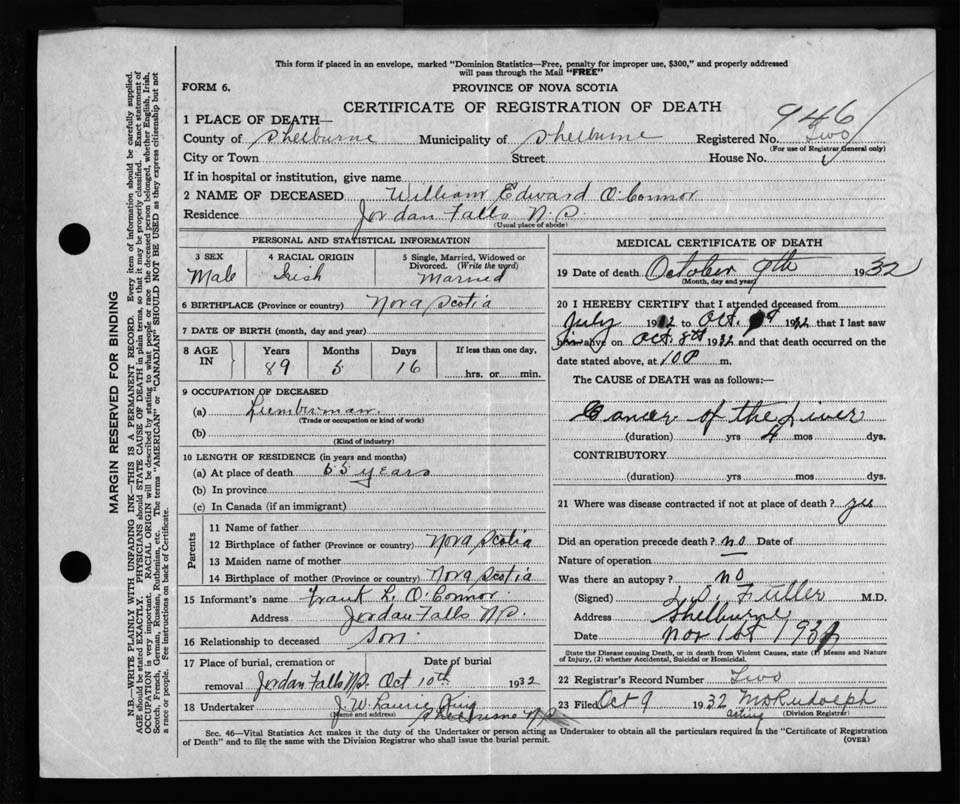 This form if placed in an envelope, marked "Dominion Statistics—Free, penalty for improper use, $300," and properly addressed
will pass through the Mail "FREE"
FORM 6.
PROVINCE OF NOVA SCOTIA
CERTIFICATE OF REGISTRATION OF DEATH
946
1 PLACE OF DEATH—
County of Shelburne Municipality of Shelburne Registered No. Two
(For use of Registrar General only)
City or Town Street House No.
If in hospital or institution, give name
2 NAME OF DECEASED William Edward O'Connor
Residence Jordan Falls N.S.
(Usual place of abode)
PERSONAL AND STATISTICAL INFORMATION
3 SEX 4 RACIAL ORIGIN 5 Single, Married, Widowed or
Divorced. (Write the word)
Male Irish Married
6 BIRTHPLACE (Province or country) Nova Scotia
7 DATE OF BIRTH (month, day and year)
8 AGE IN Years Months Days If less than one day,
89 5 16 hrs. or min.
9 OCCUPATION OF DECEASED
(a) Lumberman
(Trade or occupation or kind of work)
(b)
(Kind of industry)
10 LENGTH OF RESIDENCE (in years and months)
(a) At place of death years
(b) In province
(c) In Canada (if an immigrant)
Parents
11 Name of father
12 Birthplace of father (Province or country) Nova Scotia
13 Maiden name of mother
14 Birthplace of mother (Province or country) Nova Scotia
15 Informant's name Frank L. O'Connor
Address Jordan Falls N.S.
16 Relationship to deceased Son
17 Place of burial, cremation or Date of burial
removal Jordan Falls N.S. Oct 10th 1932
18 Undertaker J. W. Laurie King
(Name and address) Shelburne N.S.
MEDICAL CERTIFICATE OF DEATH
19 Date of death October 9th 1932
(Month, day and year)
20 I HEREBY CERTIFY that I attended deceased from
July 19 2 to Oct. 9 1932 that I last saw
him alive on Oct. 8th 1932 and that death occurred on the
date stated above, at m.
The CAUSE OF DEATH was as follows:—
Cancer of the Liver
(duration) yrs 4 mos dys.
CONTRIBUTORY
(duration) yrs. mos dys.
21 Where was disease contracted if not at place of death? yes
Did an operation precede death? no Date of
Nature of operation
Was there an autopsy? no
(Signed) Fuller M.D.
Address Shelburne
Date Nov 1st 1932
State the Disease causing Death, or in death from Violent Causes, state (1) Means and Nature
of Injury, (2) whether Accidental, Suicidal or Homicidal.
22 Registrar's Record Number Two
23 Filed Oct 9 1932 McRudolph
acting (Division Registrar)
Sec. 46—Vital Statistics Act makes it the duty of the Undertaker or person acting as Undertaker to obtain all the particulars required in the "Certificate of Registration
of Death" and to file the same with the Division Registrar who shall issue the burial permit. (OVER)
MARGIN RESERVED FOR BINDING
N.B.—WRITE PLAINLY WITH UNFADING INK—THIS IS A PERMANENT RECORD. Every item of information should be carefully supplied.
AGE should be stated EXACTLY. PHYSICIANS should STATE CAUSE OF DEATH in plain terms, so that it may be properly classified. Exact statement of
OCCUPATION is very important. RACIAL ORIGIN will be described by stating to what people or race the deceased person belonged, whether English, Irish,
Scotch, French, German, Russian, Ruthenian, etc. The terms "AMERICAN" or "CANADIAN" SHOULD NOT BE USED as they express citizenship but not
a race or people. See instructions on back of Certificate.